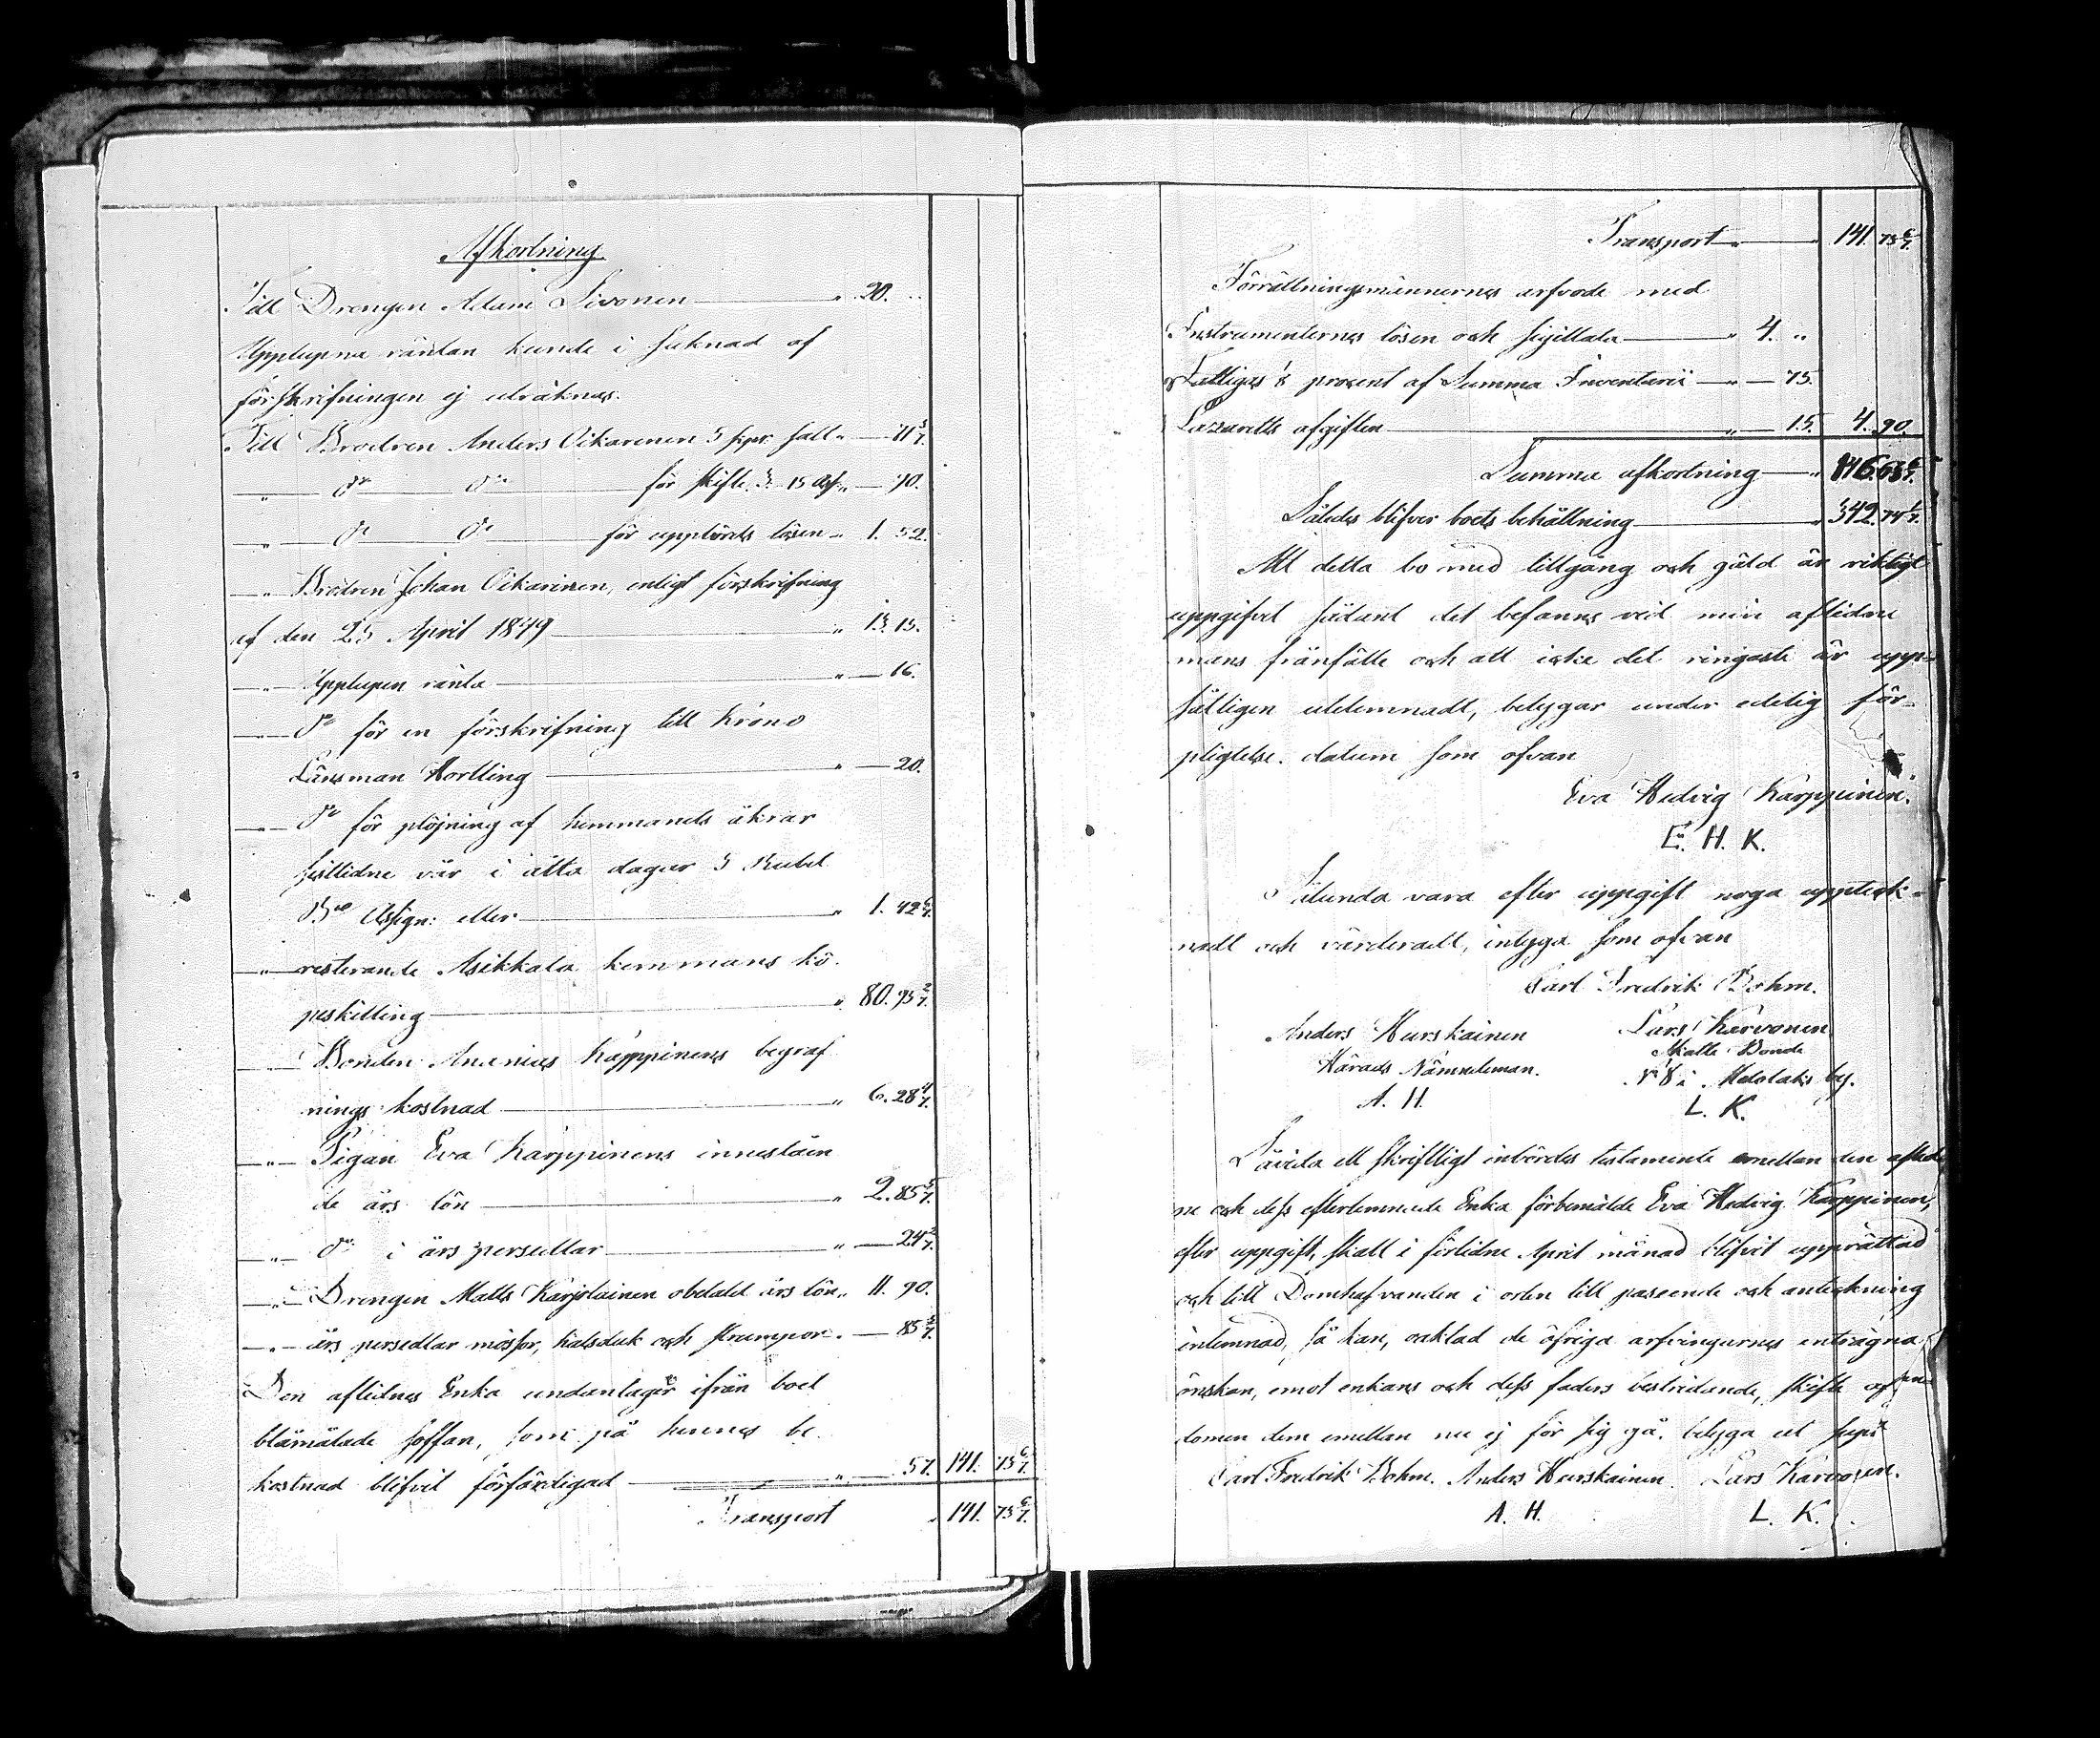 Afkortning
Till Drengen Adam Sivonen " 20. "
Upplupna räntan kunde i saknad af
förskrifningen ej uträknas.
Till Brodren Anders Oikarinen 5 skpr. salt " — 71 3/7.
" do do för skifte " — 70.
" do do för uppbörds lösen " 1. 52.
" Brodren Johan Oikarinen, enligt förskrifning
af den 25 April 1849 " 13. 15.
" Upplupen ränta " — 16.
" do för en förskrifning till Krono
Länsman Hortling " — 20.
" do för plöjning af hemmanets åkrar
sistlidne vår i åtta dagar 5 Rubel
Bco Assign: eller " 1. 42 6/7.
" resterande Asikkala hemmans kö-
peskilling " 80. 95 2/7.
" Bonden Ananias Käppinens begraf
nings kostnad " 6. 28 4/7.
" Pigan Eva Karppinens inneståen
de års lön " 2. 85 5/7.
" do i årspersedlar " — 24 2/7.
" Drengen Matts Karjolainen obetald års lön " 11. 90.
" års persedlar mössor, halsduk och strumpor " — 85 5/7.
Den aflidnes Enka undantager ifrån boet
blåmålade soffan, som på hennes be-
kostnad blifvit förfärdigad " — 57. 141. 73 6/7.
Transport " 141. 73 6/7.
Transport " 141. 73 6/7.
Förrättningsmännernes arfvode med
Instrumenternes lösen och sigillata " 4. "
Fattiges 1/8 procent af Summa Inventarii " — 75.
Lazaretts afgiften " — 15. 4. 90.
Summa afkortning " 146. 63 6/7.
Således blifver boets behållning " 342. 74 1/7.
Att detta bo med tillgång och gäld är riktigt
uppgifvet sådant det befanns vid min aflidne
mans frånfälle och att icke det ringaste är upp-
såtligen utelemnadt, betygar under edelig för-
pligtelse. datum som ofvan
Eva Hedvig Karppinen.
E. H. K.
Sålunda vara efter uppgift noga upptek-
nadt och värderadt, intyga som ofvan
Carl Fredrik Bohm.
Anders Hurskainen Lars Karvonen
Härads Nämndeman. Skatte Bonde
№ 8 i Melolaks by.
A. H. L. K.
Såvida ett skriftligt inbördes testamente emellan den aflid
ne och dess efterlemnade Enka förbemälde Eva Hedvig Karppinen,
efter uppgift, skall i förlidne April månad blifvit upprättad
och till Domhafvanden i orten till påseende och anteckning
inlemnad, så kan, oaktad de öfriga arfvingarnes enträgna
önskan, emot enkans och dess faders bestridande, skifte af egen-
domen dem emellan nu ej för sig gå. betyga ut supra
Carl Fredrik Bohm. Anders Hurskainen. Lars Karvonen.
A. H. L. K.